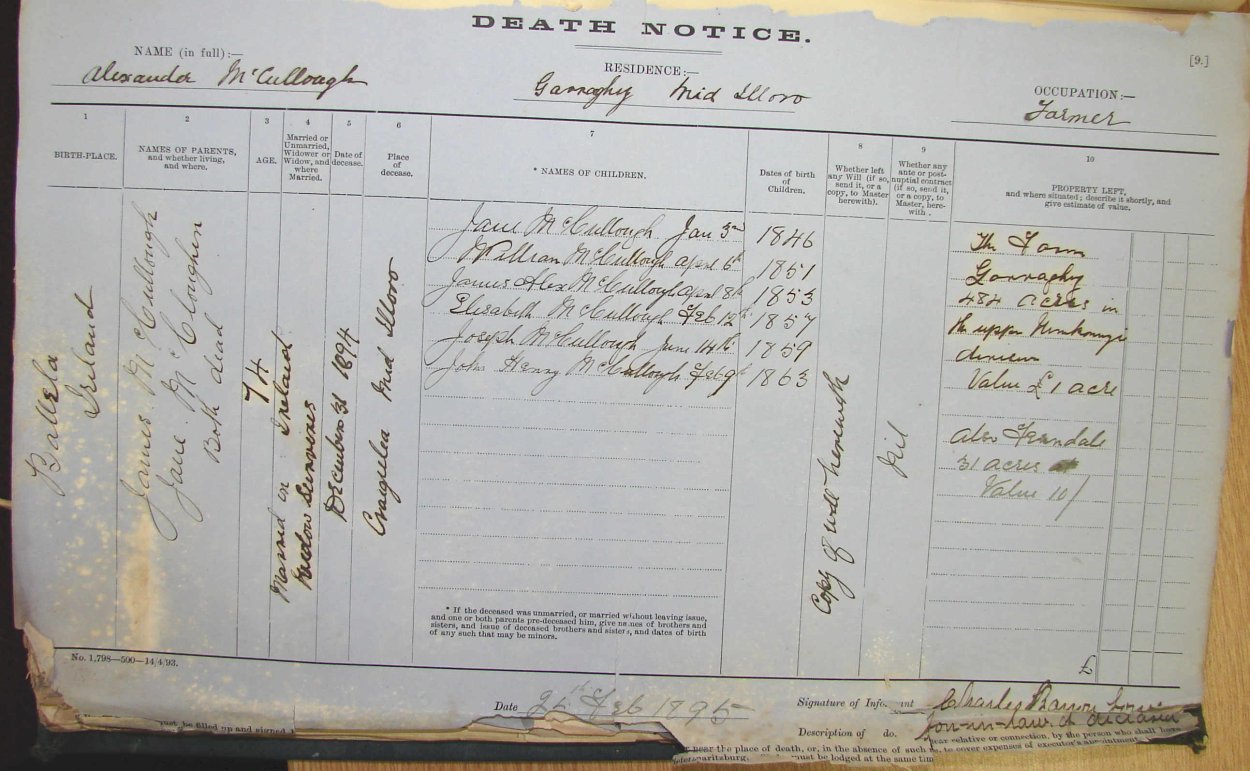 DEATH NOTICE.
[9.]
NAME (in full):—
Alexander McCullough
RESIDENCE:—
Garraghy Mid Illovo
OCCUPATION:—
Farmer
1
BIRTH-PLACE.
2
NAMES OF PARENTS,
and whether living,
and where.
3
AGE.
4
Married or
Unmarried,
Widower or
Widow, and
where
Married.
5
Date of
decease.
6
Place
of
decease.
7
* NAMES OF CHILDREN.
Dates of birth
of
Children.
8
Whether left
any Will (if so,
send it, or a
copy, to Master
herewith).
9
Whether any
ante or post-
nuptial contract
(if so, send it,
or a copy, to
Master, here-
with.
10
PROPERTY LEFT,
and where situated; describe it shortly, and
give estimate of value.
Ballela
Ireland
James McCullough
Jane McCloughin
Both dead
74
Married in Ireland
Widow Survives
December 31 1894
Craigelea Mid Illovo
Jane McCullough Jan 3rd 1846
William McCullough April 6th 1851
James Alex McCullough April 8th 1853
Elizabeth McCullough Feb 12th 1857
Joseph McCullough June 14th 1859
John Henry McCullough Feb 9th 1863
Copy of will herewith
Nil
The Farm
Garraghy
484 acres in
the upper
division
Value £1 acre
also Ferndale
31 acres
Value 10/
£
* If the deceased was unmarried, or married without leaving issue,
and one or both parents pre-deceased him, give names of brothers and
sisters, and issue of deceased brothers and sisters, and dates of birth
of any such that may be minors.
No. 1,798—500—14/4/93.
Date 25th Feb 1895
Signature of Informant Charles Barron
Description of do. Son-in-law of deceased
must be filled up and signed
near relative or connection, by the person who shall have
near the place of death, or, in the absence of such
to cover expenses of executor's appointment
must be lodged at the same time